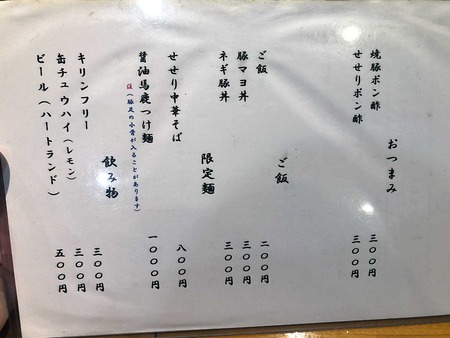 おつまみ
焼豚ポン酢 三〇〇円
せせりポン酢 三〇〇円
ご飯
ご飯 二〇〇円
豚マヨ丼 三〇〇円
ネギ豚丼 三〇〇円
限定麺
せせり中華そば 八〇〇円
醤油馬鹿つけ麺 一〇〇〇円
注(豚足の小骨が入ることがあります)
飲み物
キリンフリー 三〇〇円
缶チュウハイ(レモン) 三〇〇円
ビール(ハートランド) 五〇〇円